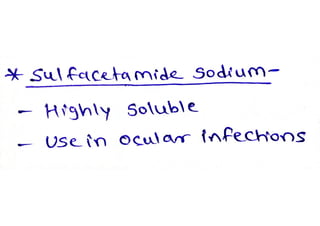 * Sulfacetamide Sodium-
- Highly Soluble
- Use in ocular infections